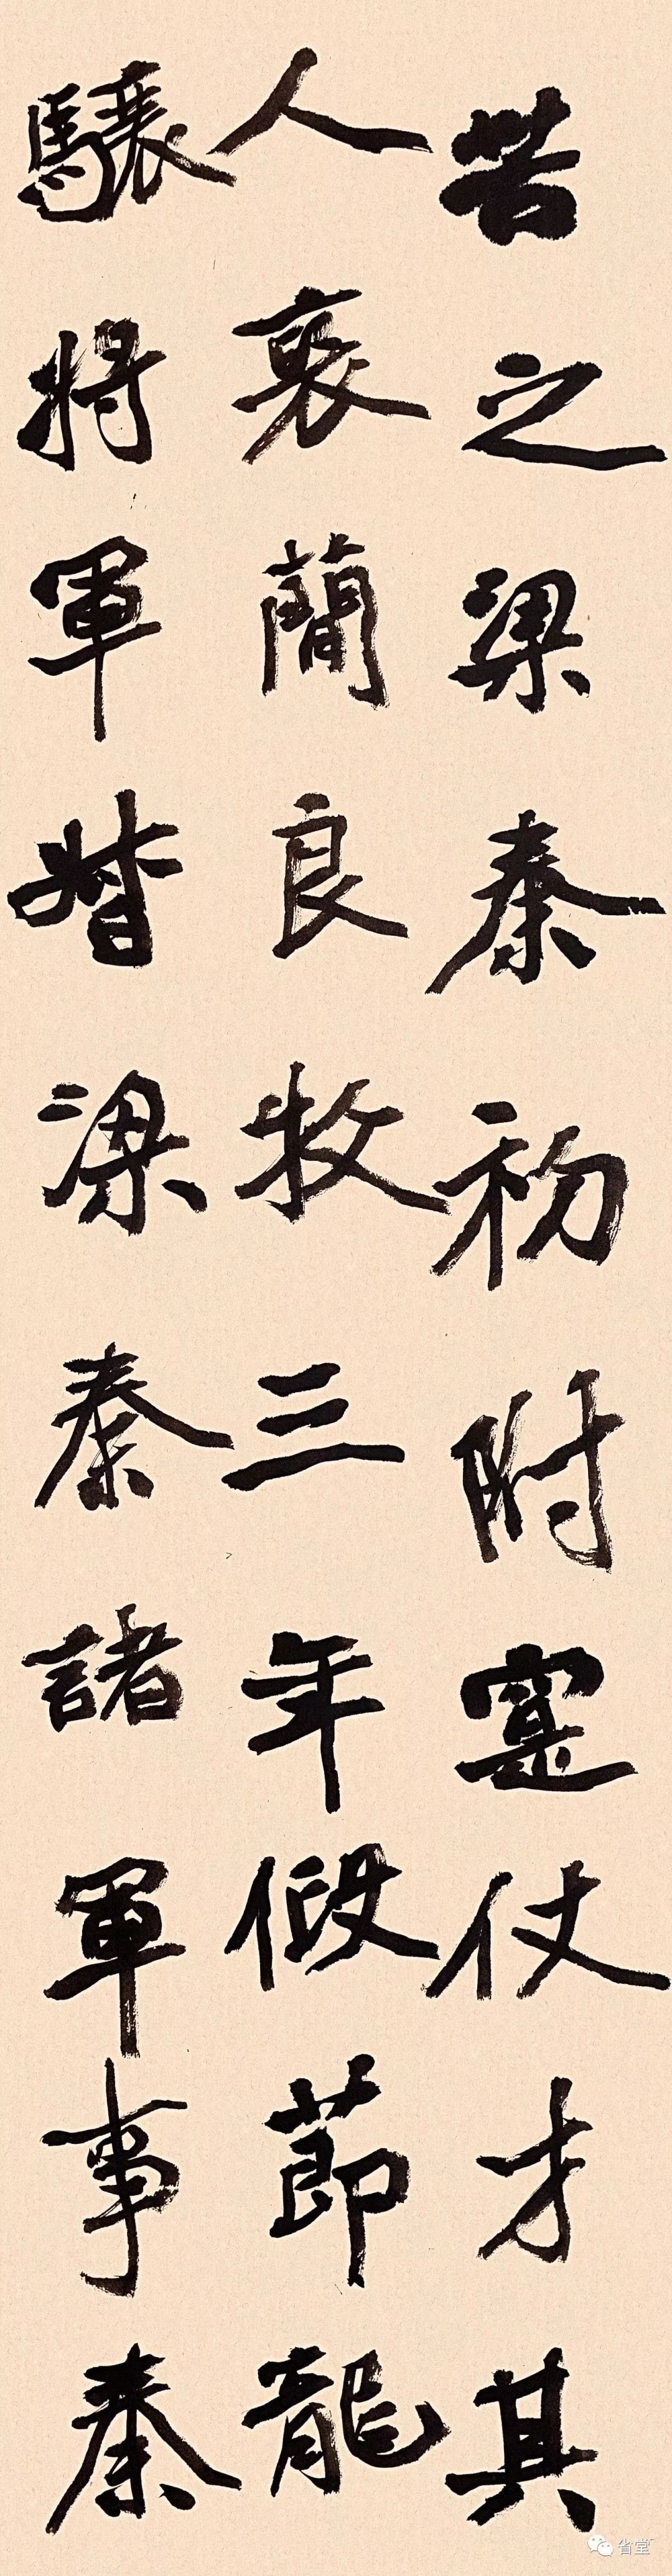 苦之梁秦初附寔仗才其
人裒簡良牧三年假節龍
驤將軍督梁秦諸軍事秦
省堂